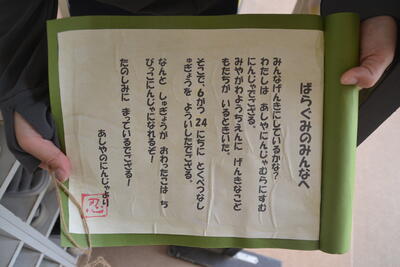 ばらぐみのみんなへ
みんなげんきにしているかな?
わたしは あしやにんじゃむらにすむ
にんじゃでござる。
みやがわようちえんに げんきなこど
もたちが いるときいた。
そこで、6がつ 24 にちに とくべつなし
ゅぎょうを よういしたでござる。
なんと しゅぎょうが おわったこは ち
びっこにんじゃになれるぞ!
たのしみに まっているでござる!
あしやのにんじゃより